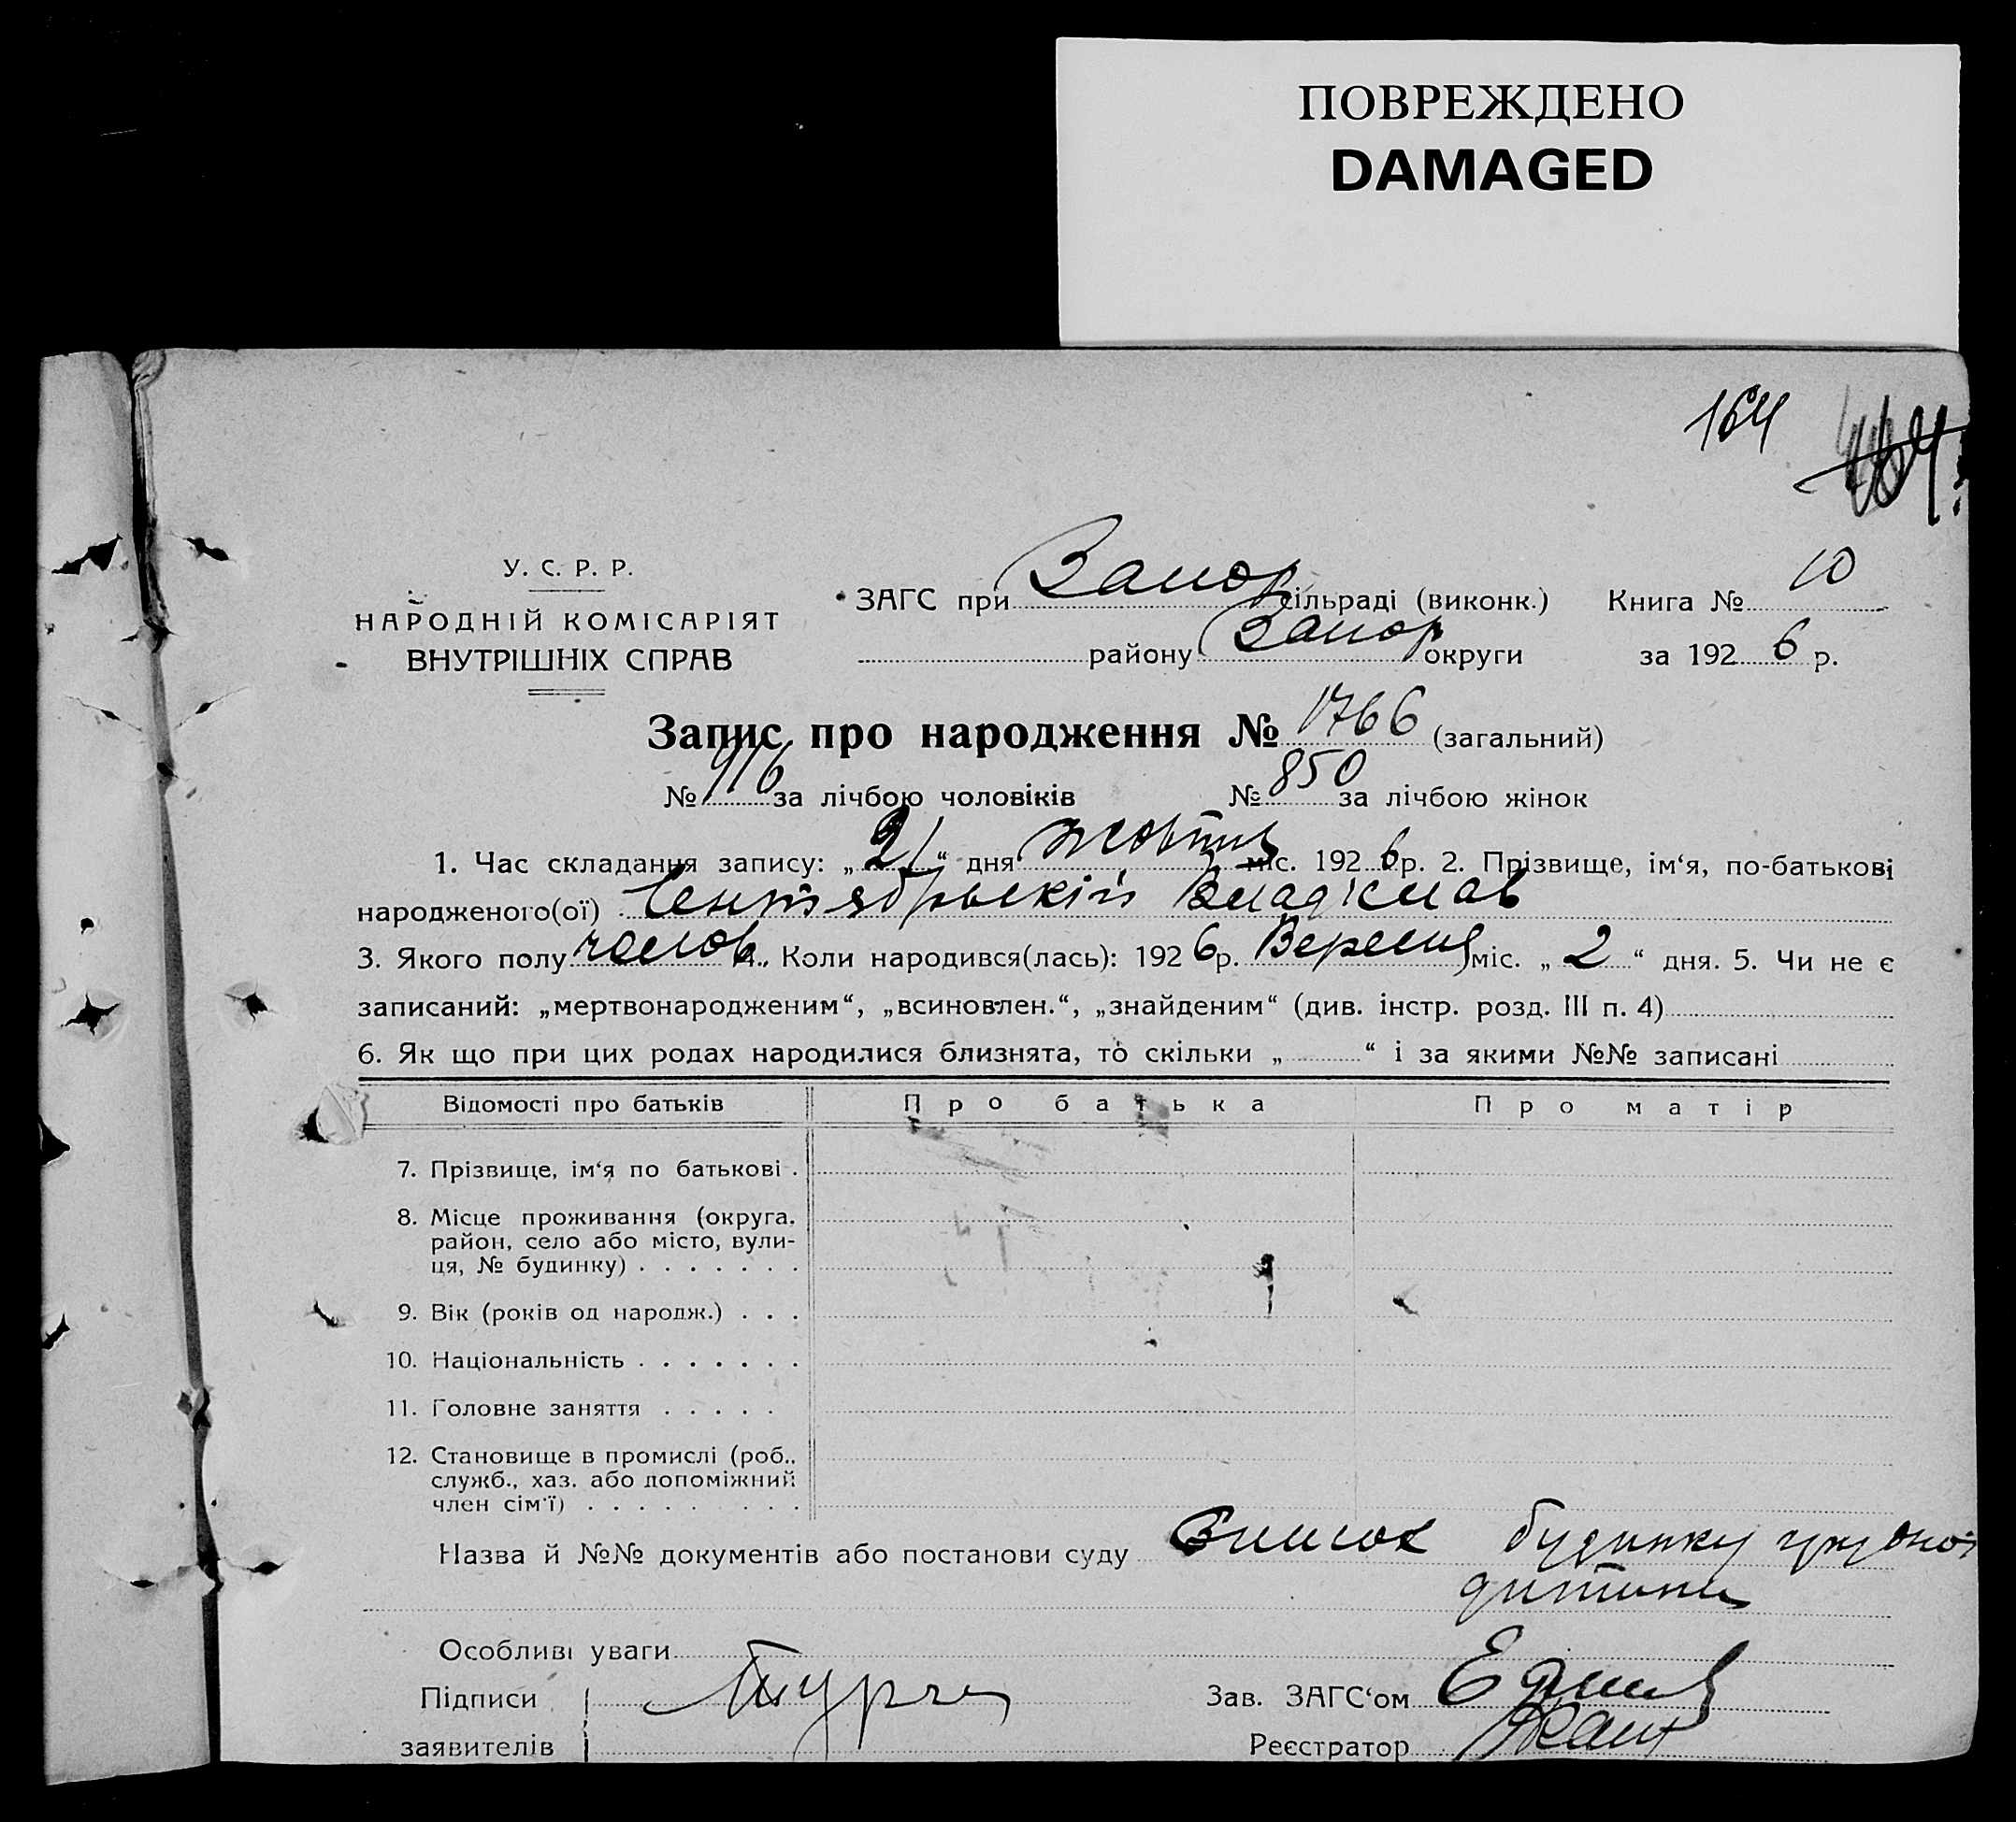 ПОВРЕЖДЕНО
DAMAGED
164
164
У. С. Р. Р.
НАРОДНІЙ КОМІСАРІЯТ
ВНУТРІШНІХ СПРАВ
ЗАГС при Запор сільраді (виконк.) Книга № 10
району Запор округи за 1926 р.
Запис про народження № 1766 (загальний)
№ 916 за лічбою чоловіків № 850 за лічбою жінок
1. Час складання запису: „21“ дня жовтня міс. 1926 р. 2. Прізвище, ім‘я, по-батькові
народженого(ої) Сентябрьскій Владіслав
3. Якого полу чолов. 4. Коли народився(лась): 1926 р. Вересня міс. „2“ дня. 5. Чи не є
записаний: „мертвонародженим“, „всиновлен.“, „знайденим“ (див. інстр. розд. III п. 4)
6. Як що при цих родах народилися близнята, то скільки „ “ і за якими №№ записані
Відомості про батьків Про батька Про матір
7. Прізвище, ім‘я по батькові .
8. Місце проживання (округа.
район, село або місто, вули-
ця, № будинку) . . . . . . .
9. Вік (років од народж.) . . .
10. Національність . . . . . . .
11. Головне заняття . . . . .
12. Становище в промислі (роб.,
служб., хаз. або допоміжний
член сім‘ї) . . . . . . . . .
Назва й №№ документів або постанови суду Список будинку грудної
дитини
Особливі уваги
Підписи Зав. ЗАГС‘ом
заявителів Реєстратор